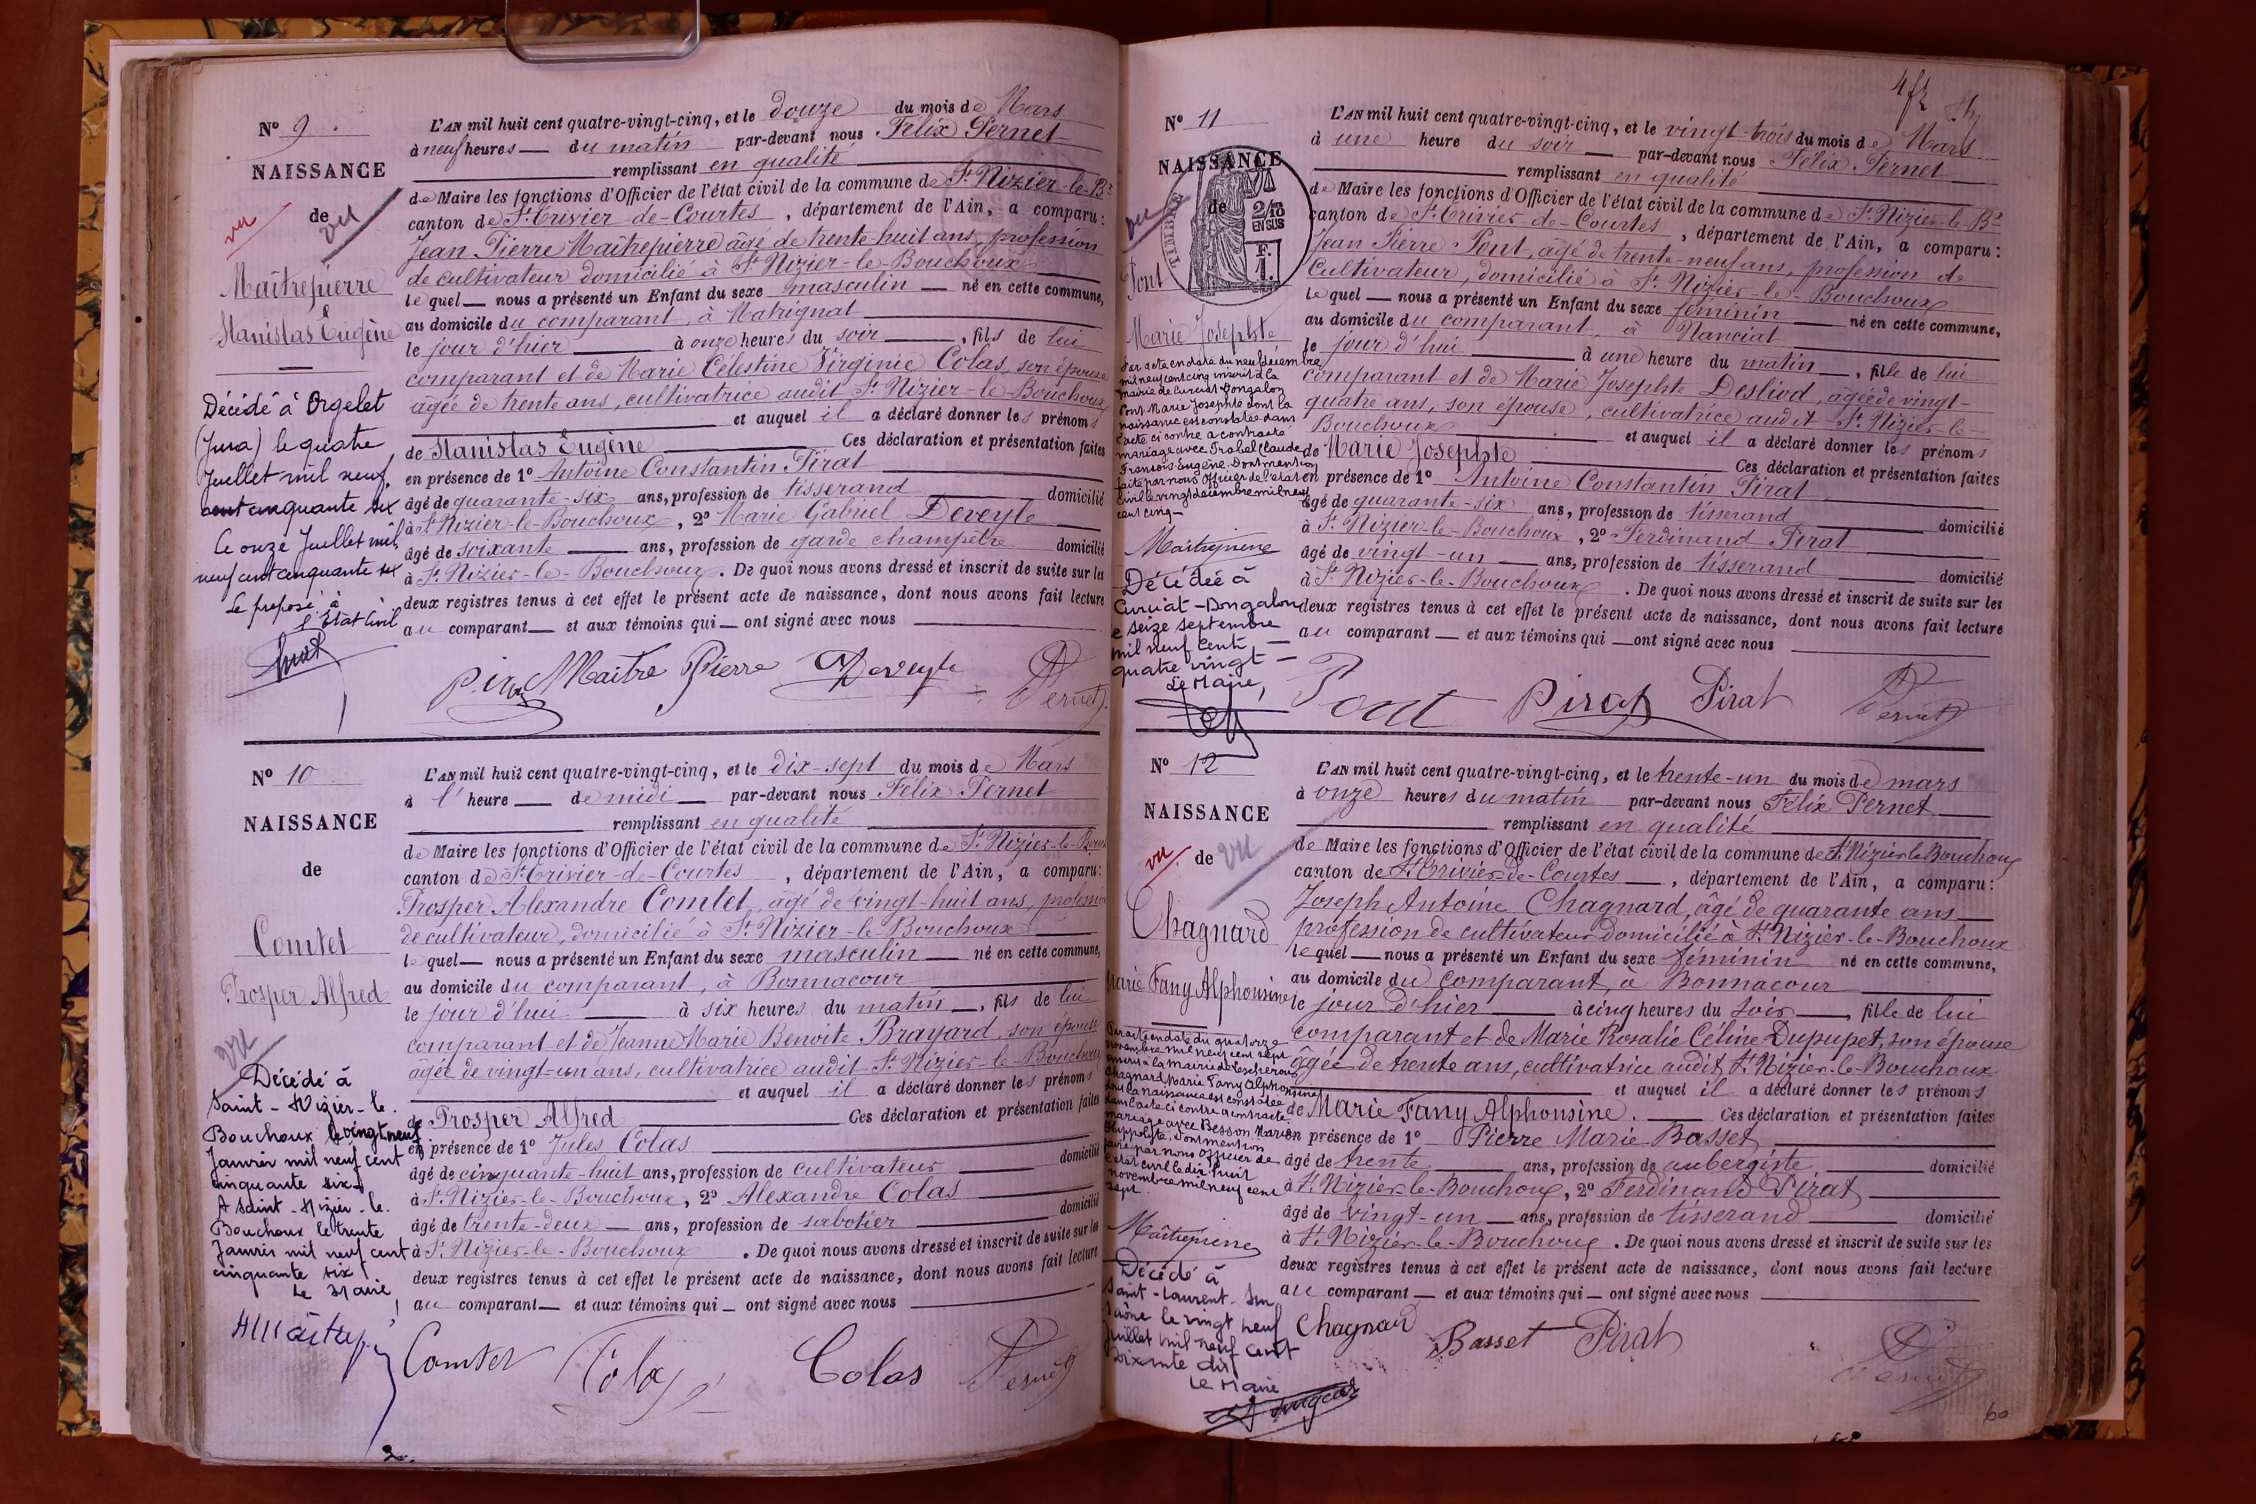 Nº 9
NAISSANCE
de
vu
vu
Maîtrepierre
Stanislas Eugène
Décédé à Orgelet
(Jura) le quatre
Juillet mil neuf
cent cinquante six
Le onze Juillet mil
neuf cent cinquante six
Le préposé à
l'Etat Civil
L'AN mil huit cent quatre-vingt-cinq, et le douze du mois de Mars
à neuf heures du matin par-devant nous Félix Pernet
remplissant en qualité
de Maire les fonctions d'Officier de l'état civil de la commune de St Nizier-le-Bx
canton de St Trivier-de-Courtes, département de l'Ain, a comparu:
Jean Pierre Maîtrepierre âgé de trente huit ans, profession
de cultivateur domicilié à St Nizier-le-Bouchoux
lequel nous a présenté un Enfant du sexe masculin né en cette commune,
au domicile du comparant, à Matrignat
le jour d'hier à onze heures du soir, fils de lui
comparant et de Marie Célestine Virginie Colas, son épouse
âgée de trente ans, cultivatrice audit St Nizier-le-Bouchoux
et auquel il a déclaré donner les prénoms
de Stanislas Eugène Ces déclaration et présentation faites
en présence de 1º Antoine Constantin Pirat
âgé de quarante-six ans, profession de tisserand domicilié
à St Nizier-le-Bouchoux, 2º Marie Gabriel Deveyle
âgé de soixante ans, profession de garde champêtre domicilié
à St Nizier-le-Bouchoux. De quoi nous avons dressé et inscrit de suite sur les
deux registres tenus à cet effet le présent acte de naissance, dont nous avons fait lecture
au comparant et aux témoins qui ont signé avec nous
Pirat Maitre Pierre Deveyle Pernet
Nº 10
NAISSANCE
de
Comtet
Prosper Alfred
vu
Décédé à
Saint-Nizier-le-
Bouchoux le vingt neuf
Janvier mil neuf cent
cinquante six
A Saint-Nizier-le-
Bouchoux le trente
Janvier mil neuf cent
cinquante six
Le Maire
L'AN mil huit cent quatre-vingt-cinq, et le dix-sept du mois de Mars
à l' heure de midi par-devant nous Félix Pernet
remplissant en qualité
de Maire les fonctions d'Officier de l'état civil de la commune de St Nizier-le-Boux
canton de St Trivier-de-Courtes, département de l'Ain, a comparu:
Prosper Alexandre Comtet, âgé de vingt-huit ans, profession
de cultivateur, domicilié à St Nizier-le-Bouchoux
lequel nous a présenté un Enfant du sexe masculin né en cette commune,
au domicile du comparant, à Bonnacour
le jour d'hui à six heures du matin, fils de lui
comparant et de Jeanne Marie Benoite Brayard, son épouse
âgée de vingt-un ans, cultivatrice audit St Nizier-le-Bouchoux
et auquel il a déclaré donner les prénoms
de Prosper Alfred Ces déclaration et présentation faites
en présence de 1º Jules Colas
âgé de cinquante-huit ans, profession de cultivateur domicilié
à St Nizier-le-Bouchoux, 2º Alexandre Colas
âgé de trente-deux ans, profession de sabotier domicilié
à St Nizier-le-Bouchoux. De quoi nous avons dressé et inscrit de suite sur les
deux registres tenus à cet effet le présent acte de naissance, dont nous avons fait lecture
au comparant et aux témoins qui ont signé avec nous
Comtet Colas Colas Pernet
Nº 11
NAISSANCE
de
vu
TIMBRE
2/10
EN SUS
F.
1.
Pont
Marie Josephte
Par acte en date du neuf décembre
mil neuf cent cinq inscrit à la
mairie de Curciat-Dongalon
Pont Marie Josephte dont la
naissance est constatée dans
l'acte ci contre a contracté
mariage avec Trabel Claude
François Eugène. Dont mention
faite par nous officier de l'état
civil le vingt décembre mil neuf
cent cinq
Maîtrepierre
Décédée à
Curciat-Dongalon
le seize septembre
mil neuf cent
quatre vingt
Le Maire,
L'AN mil huit cent quatre-vingt-cinq, et le vingt-trois du mois de Mars
à une heure du soir par-devant nous Félix Pernet
remplissant en qualité
de Maire les fonctions d'Officier de l'état civil de la commune de St Nizier-le-Bx
canton de St Trivier-de-Courtes, département de l'Ain, a comparu:
Jean Pierre Pont, âgé de trente-neuf ans, profession de
Cultivateur, domicilié à St Nizier-le-Bouchoux
lequel nous a présenté un Enfant du sexe féminin né en cette commune,
au domicile du comparant, à Nanciat
le jour d'hui à une heure du matin, fille de lui
comparant et de Marie Josephte Desliod, âgée de vingt-
quatre ans, son épouse, cultivatrice audit St Nizier-le-
Bouchoux et auquel il a déclaré donner les prénoms
de Marie Josephte Ces déclaration et présentation faites
en présence de 1º Antoine Constantin Pirat
âgé de quarante-six ans, profession de tisserand domicilié
à St Nizier-le-Bouchoux, 2º Ferdinand Pirat
âgé de vingt-un ans, profession de tisserand domicilié
à St Nizier-le-Bouchoux. De quoi nous avons dressé et inscrit de suite sur les
deux registres tenus à cet effet le présent acte de naissance, dont nous avons fait lecture
au comparant et aux témoins qui ont signé avec nous
Pont Pirat Pirat Pernet
Nº 12
NAISSANCE
de
vu
vu
Chagnard
Marie Fany Alphonsine
Par acte en date du quatorze
novembre mil neuf cent sept
inscrit à la mairie de Lescheroux
Chagnard Marie Fany Alphonsine
dont la naissance est constatée
dans l'acte ci contre a contracté
mariage avec Besson Marie
Hippolyte. Dont mention
faite par nous officier de
l'état civil le dix huit
novembre mil neuf cent
sept
Maîtrepierre
Décédé à
Saint-Laurent-sur
Saône le vingt neuf
Juillet mil neuf cent
soixante dix
Le Maire
L'AN mil huit cent quatre-vingt-cinq, et le trente-un du mois de mars
à onze heures du matin par-devant nous Félix Pernet
remplissant en qualité
de Maire les fonctions d'Officier de l'état civil de la commune de St Nizier le Bouchoux
canton de St Trivier-de-Courtes, département de l'Ain, a comparu:
Joseph Antoine Chagnard, âgé de quarante ans
profession de cultivateur domicilié à St Nizier-le-Bouchoux
lequel nous a présenté un Enfant du sexe féminin né en cette commune,
au domicile du comparant, à Bonnacour
le jour d'hier à cinq heures du soir, fille de lui
comparant et de Marie Rosalie Céline Dupupet, son épouse
âgée de trente ans, cultivatrice audit St Nizier-le-Bouchoux
et auquel il a déclaré donner les prénoms
de Marie Fany Alphonsine. Ces déclaration et présentation faites
en présence de 1º Pierre Marie Basset
âgé de trente ans, profession de aubergiste domicilié
à St Nizier-le-Bouchoux, 2º Ferdinand Pirat
âgé de vingt-un ans, profession de tisserand domicilié
à St Nizier-le-Bouchoux. De quoi nous avons dressé et inscrit de suite sur les
deux registres tenus à cet effet le présent acte de naissance, dont nous avons fait lecture
au comparant et aux témoins qui ont signé avec nous
Chagnard Basset Pirat Pernet
60